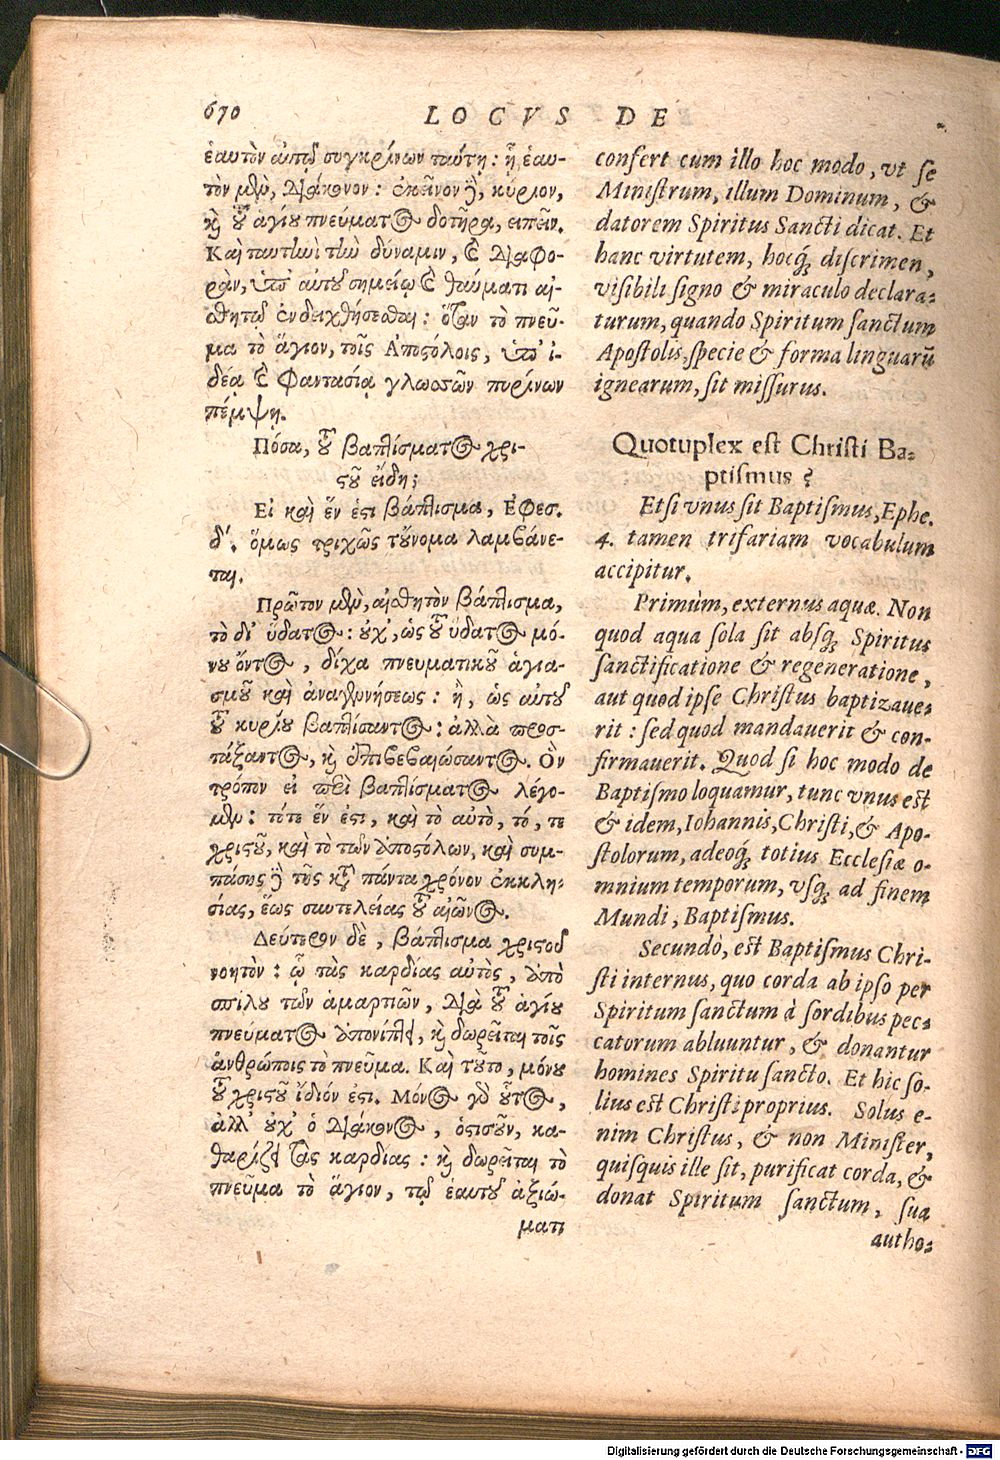 670
LOCVS DE
ἑαυτὸν αὐτῷ συγκρίνων ταύτῃ: ἢ ἑαυ-
τὸν μὲν, διάκονον: ἐκεῖνον δὲ, κύριον,
καὶ τοῦ ἁγίου πνεύματος δοτῆρα, ειπεῖν.
Καὶ ταυτηνὶ τὴν δύναμιν, καὶ διαφο-
ρὰν, ὑπ' αὐτοῦ σημείῳ καὶ θαύματι αἰ-
σθητῷ ἐνδειχθήσεσθαι: ὅταν τὸ πνεῦ-
μα τὸ ἅγιον, τοῖς Ἀποστόλοις, ὑπ' ἰ-
δέᾳ καὶ Φαντασίᾳ γλωσσῶν πυρίνων
πέμψῃ.
Πόσα, τοῦ βαπτίσματος χρι-
στοῦ εἴδη;
Εἰ καὶ ἕν ἐστι βάπτισμα, Ἐφεσ.
δ'. ὅμως τριχῶς τοὔνομα λαμβάνε-
ται.
Πρῶτον μὲν, αἰσθητὸν βάπτισμα,
τὸ δι' ὕδατος: οὐχ', ὡς τοῦ ὕδατος μό-
νου ὄντος, δίχα πνευματικοῦ ἁγια-
σμοῦ καὶ ἀναγεννήσεως: ἢ, ὡς αὐτοῦ
τοῦ κυρίου βαπτίσαντος: ἀλλὰ προσ-
τάξαντος, καὶ ἐπιβεβαιώσαντος. Ὃν
τρόπον εἰ περὶ βαπτίσματος λέγο-
μεν: τότε ἕν ἐστι, καὶ τὸ αὐτὸ, τό, τε
χριστοῦ, καὶ τὸ τῶν ἀποστόλων, καὶ συμ-
πάσης δὲ τῆς κατὰ πάντα χρόνον ἐκκλη-
σίας, ἕως συντελείας τοῦ αἰῶνος.
Δεύτερον δὲ, βάπτισμα χριστοῦ
νοητὸν: ᾧ τὰς καρδίας αὐτὸς, ἀπὸ
σπίλου τῶν ἁμαρτιῶν, διὰ τοῦ ἁγίου
πνεύματος ἀπονίπτει, καὶ δωρεῖται τοῖς
ἀνθρώποις τὸ πνεῦμα. Καὶ τοῦτο, μόνου
τοῦ χριστοῦ ἴδιόν ἐστι. Μόνος γὰρ οὗτος,
ἀλλ' οὐχ' ὁ διάκονος, ὁστισοῦν, κα-
θαρίζει τὰς καρδίας: καὶ δωρεῖται τὸ
πνεῦμα τὸ ἅγιον, τῷ ἑαυτοῦ ἀξιώ-
ματι
confert cum illo hoc modo, vt se
Ministrum, illum Dominum, &
datorem Spiritus Sancti dicat. Et
hanc virtutem, hocq́; discrimen,
visibili signo & miraculo declara-
turum, quando Spiritum sanctum
Apostolis, specie & forma linguarū
ignearum, sit missurus.
Quotuplex est Christi Ba-
ptismus?
Etsi vnus sit Baptismus, Ephe.
4. tamen trifariam vocabulum
accipitur.
Primùm, externus aquæ. Non
quod aqua sola sit absq́; Spiritus
sanctificatione & regeneratione,
aut quod ipse Christus baptizaue-
rit: sed quod mandauerit & con-
firmauerit. Quod si hoc modo de
Baptismo loquamur, tunc vnus est
& idem, Iohannis, Christi, & Apo-
stolorum, adeoq́; totius Ecclesiæ o-
mnium temporum, vsq́; ad finem
Mundi, Baptismus.
Secundò, est Baptismus Chri-
sti internus, quo corda ab ipso per
Spiritum sanctum à sordibus pec-
catorum abluuntur, & donantur
homines Spiritu sancto. Et hic so-
lius est Christi proprius. Solus e-
nim Christus, & non Minister,
quisquis ille sit, purificat corda, &
donat Spiritum sanctum, sua
autho-
Digitalisierung gefördert durch die Deutsche Forschungsgemeinschaft - DFG